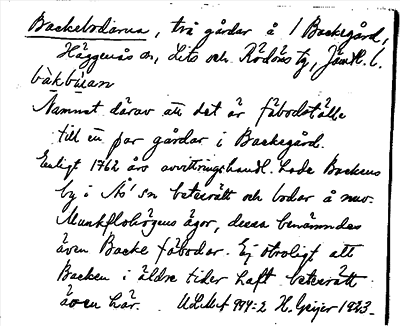 Backebodarna, två gårdar å 1 Backegård,
Häggenås sn, Lits och Rödöns tg, Jämtl. l.
bàkbùan
Namnet därav att det är fäbodställe
till en par gårdar i Backegård.
Enligt 1762 års avvittringshandl. hade Backens
by i Ås sn betesrätt och bodar å nuv.
Munkflohögens ägor, dessa benämndes
även Backe fäbodar. Ej otroligt att
Backen i äldre tider haft betesrätt
även här. ULMA 994:2 H. Geijer 1923.